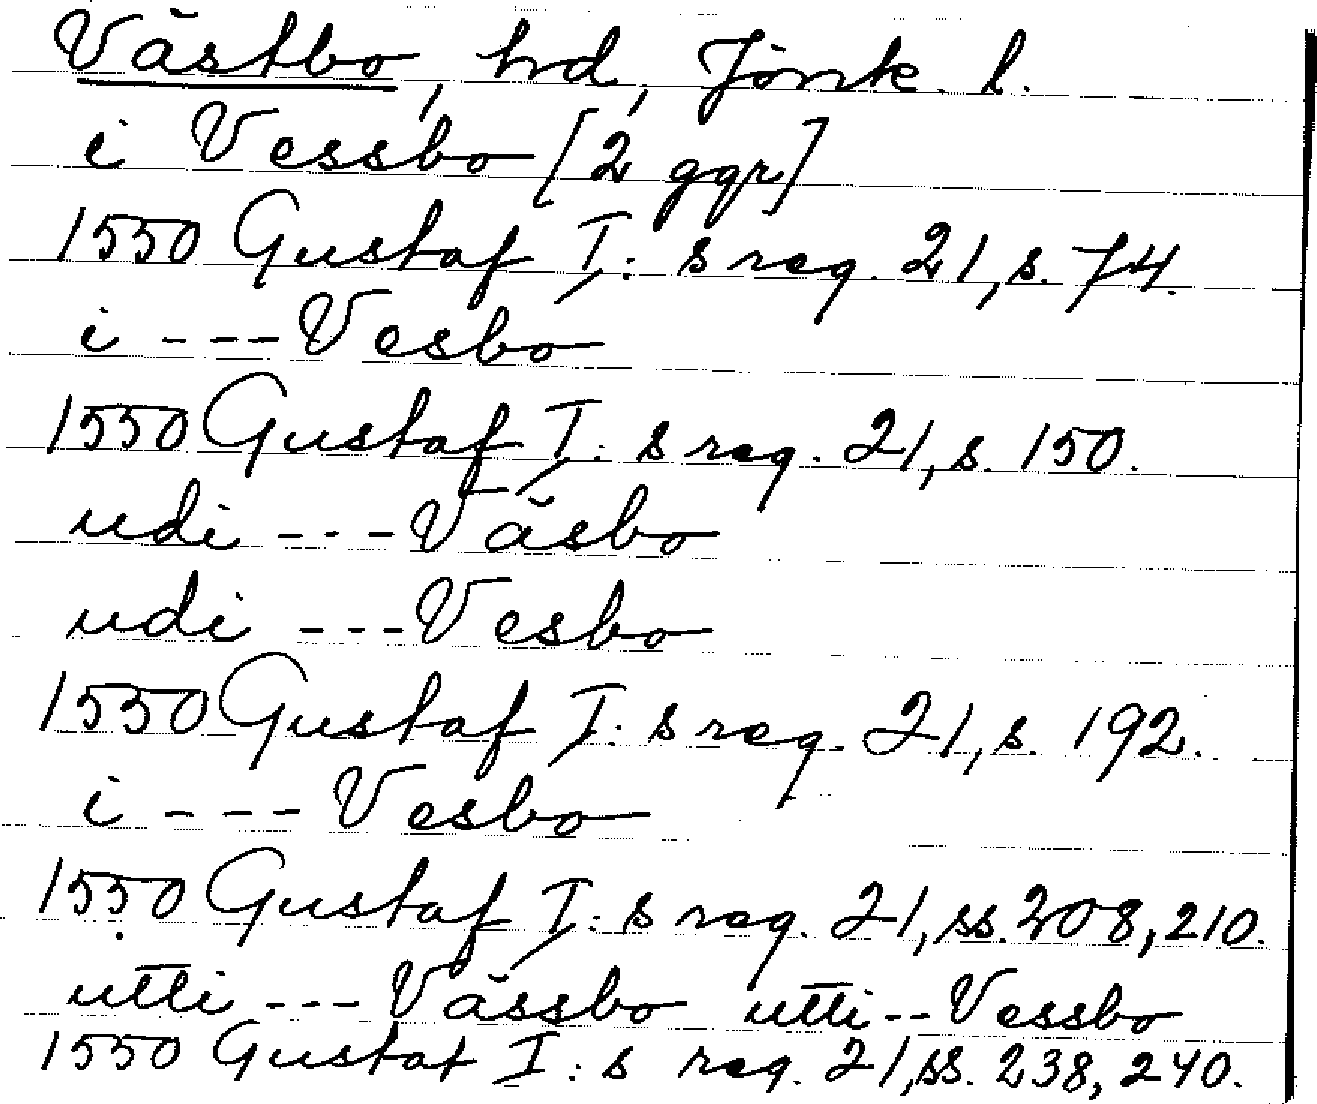 Västbo, hd, Jönk. l.
i Vessbo [2 ggr]
1550 Gustaf I: s reg. 21, s. 74.
i --- Vesbo
1550 Gustaf I: s reg. 21, s. 150.
udi --- Väsbo
udi --- Vesbo
1550 Gustaf I: s reg. 21, s. 192.
i --- Vesbo
1550 Gustaf I: s reg. 21, ss. 208, 210.
utti --- Vässbo utti -- Vessbo
1550 Gustaf I: s reg. 21, ss. 238, 240.